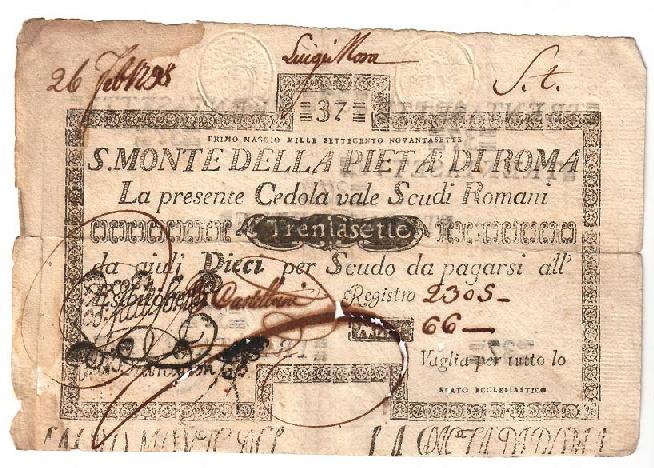 Luigi Mora
26 Feb 1798
S. t.
37
PRIMO MAGGIO MILLE SETTECENTO NOVANTASETTE
S. MONTE DELLA PIETA' DI ROMA
La presente Cedola vale Scudi Romani
Trentasette
da giuli Dieci per Scudo da pagarsi all'
Esibitore
Registro 2305
66
Vaglia per tutto lo
STATO ECCLESIASTICO